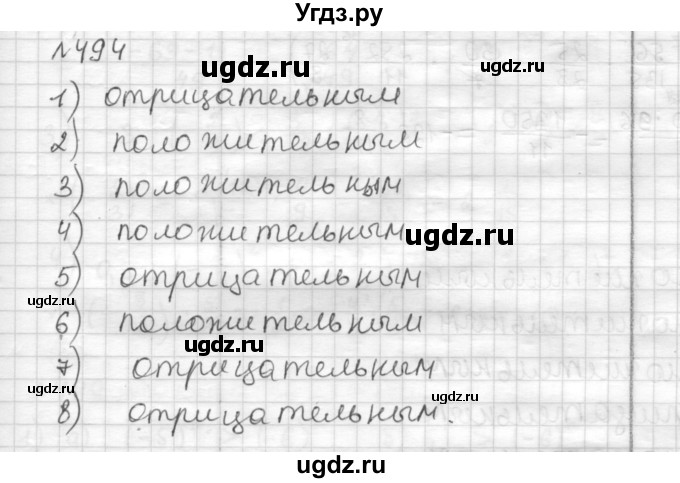 Угдз.ру
№494
ugdz.ru
1) отрицательным
2) положительным
ugdz.ru
3) положительным
4) положительным
ugdz.ru
5) отрицательным
ugdz.ru
6) положительным
ugdz.ru
7) отрицательным
ugdz.ru
ugdz.ru
8) отрицательным.
ugdz.ru